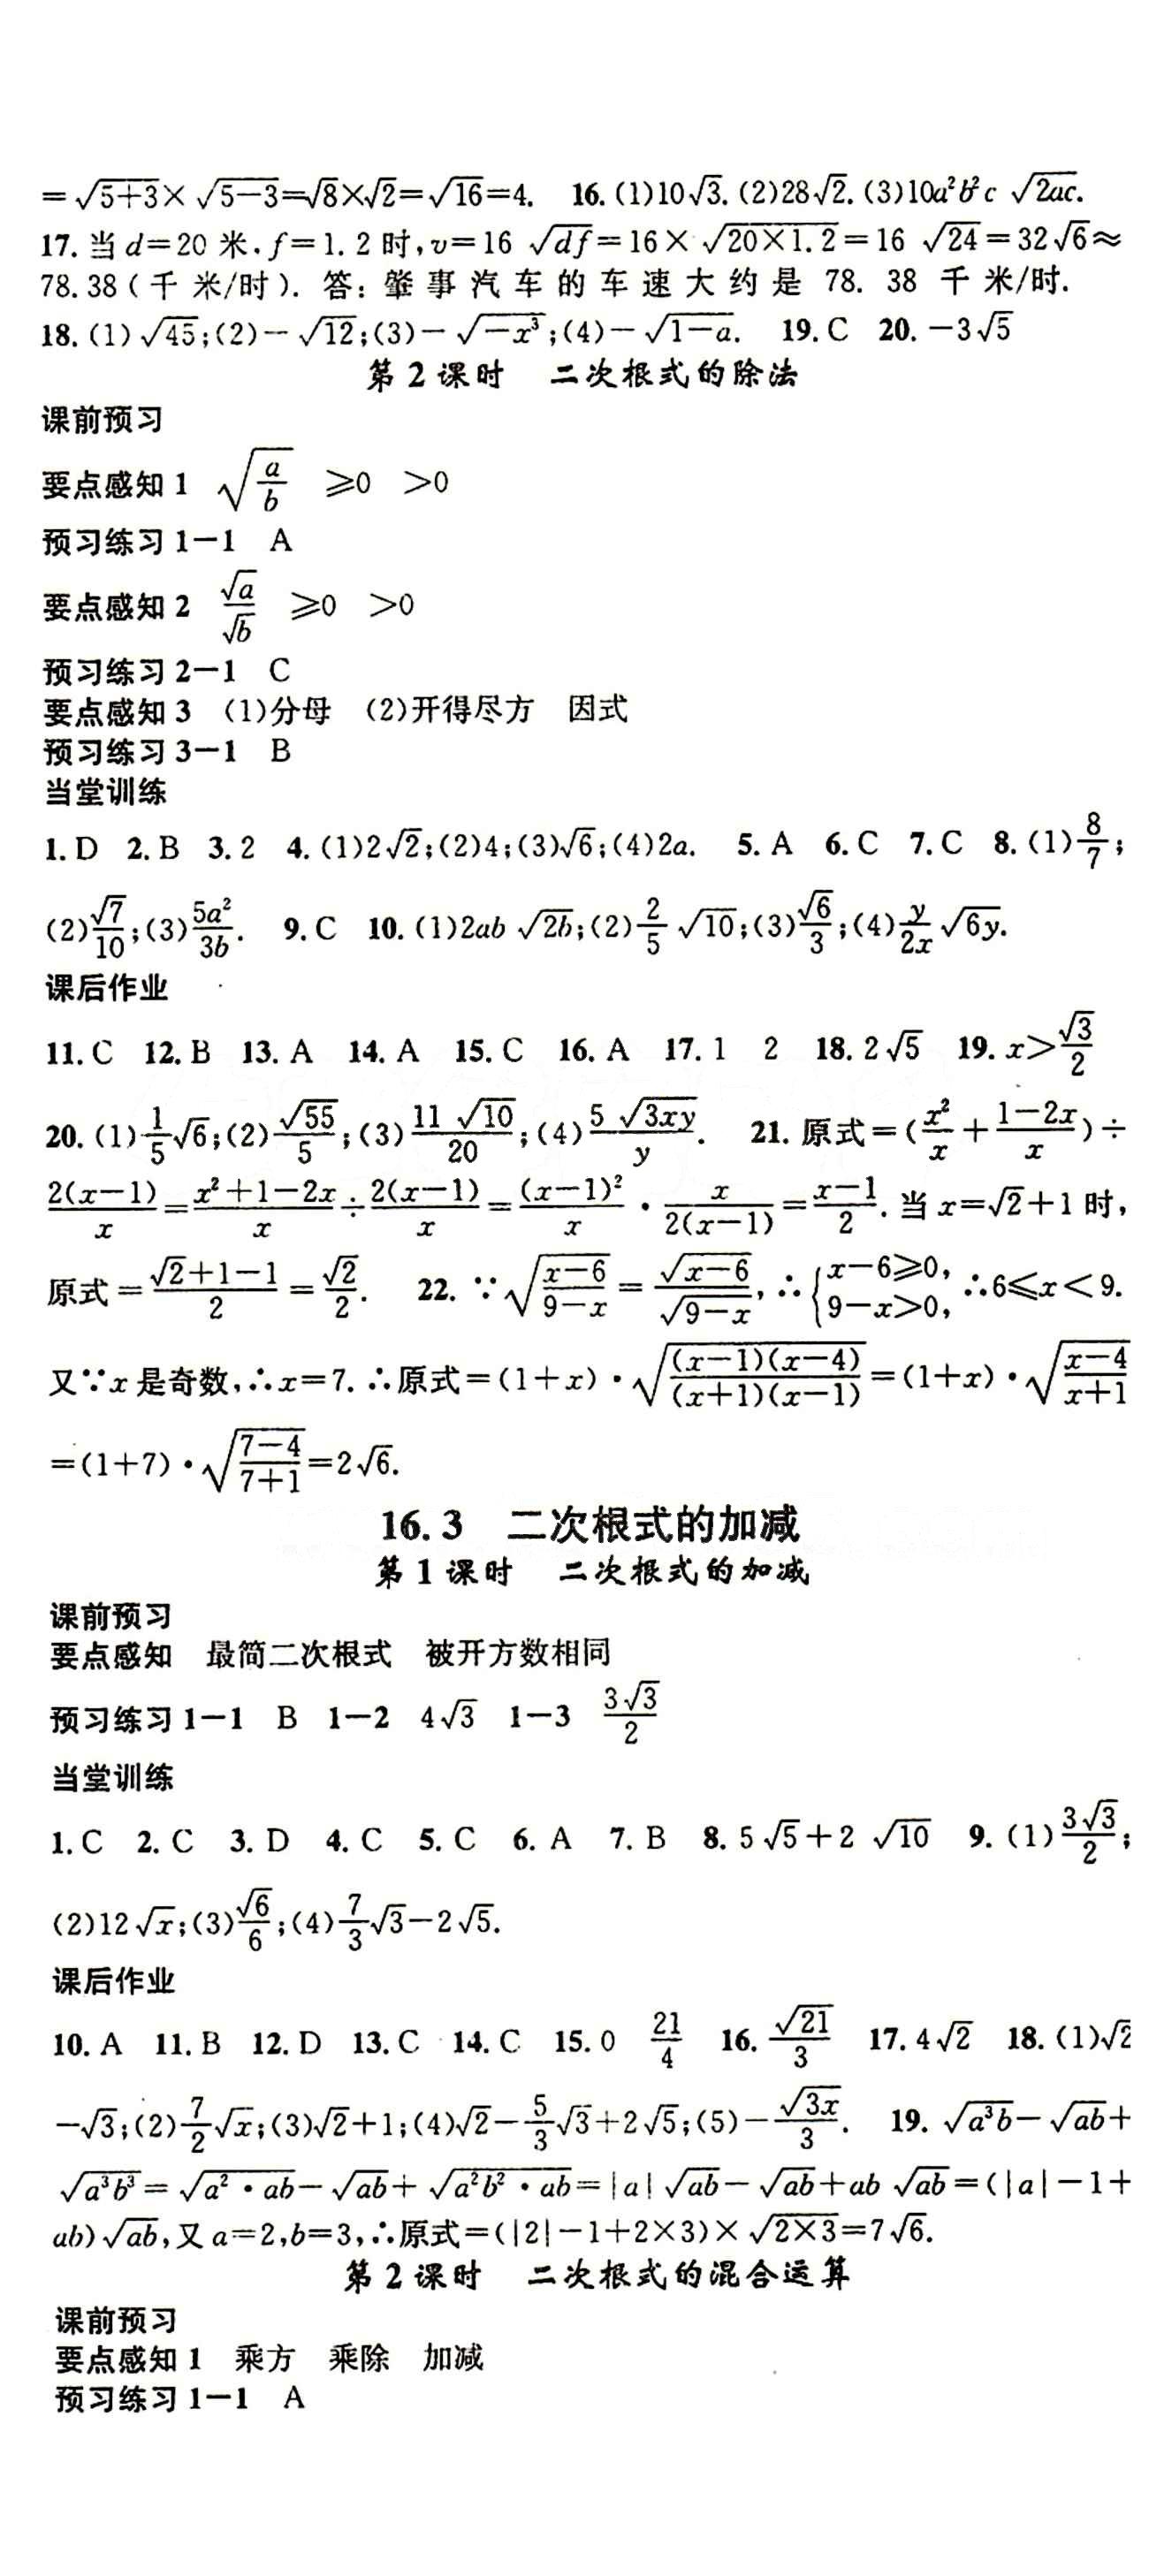 =√(5+3)×√(5-3)=√8×√2=√16=4. 16.(1)10√3.(2)28√2.(3)10a²b²c√(2ac).
17.当d=20米,f=1.2时,v=16√(df)=16×√(20×1.2)=16√24=32√6≈
78.38(千米/时).答:肇事汽车的车速大约是78.38千米/时.
18.(1)√45;(2)-√12;(3)-√(-x³);(4)-√(1-a). 19.C 20.-3√5
第2课时 二次根式的除法
课前预习
要点感知1 √(a/b) ≥0 >0
预习练习1-1 A
要点感知2 √a/√b ≥0 >0
预习练习2-1 C
要点感知3 (1)分母 (2)开得尽方 因式
预习练习3-1 B
当堂训练
1.D 2.B 3.2 4.(1)2√2;(2)4;(3)√6;(4)2a. 5.A 6.C 7.C 8.(1)8/7;
(2)√7/10;(3)5a²/3b. 9.C 10.(1)2ab√(2b);(2)2/5√10;(3)√6/3;(4)y/2x√(6y).
课后作业
11.C 12.B 13.A 14.A 15.C 16.A 17.1 2 18.2√5 19.x>√3/2
20.(1)1/5√6;(2)√55/5;(3)11√10/20;(4)5√(3xy)/y. 21.原式=(x²/x+(1-2x)/x)÷
2(x-1)/x=(x²+1-2x)/x÷2(x-1)/x=(x-1)²/x·x/2(x-1)=(x-1)/2.当x=√2+1时,
原式=(√2+1-1)/2=√2/2. 22.∵√((x-6)/(9-x))=√(x-6)/√(9-x),∴{x-6≥0,9-x>0,∴6≤x<9.
又∵x是奇数,∴x=7.∴原式=(1+x)·√((x-1)(x-4)/(x+1)(x-1))=(1+x)·√((x-4)/(x+1))
=(1+7)·√((7-4)/(7+1))=2√6.
16.3 二次根式的加减
第1课时 二次根式的加减
课前预习
要点感知 最简二次根式 被开方数相同
预习练习1-1 B 1-2 4√3 1-3 3√3/2
当堂训练
1.C 2.C 3.D 4.C 5.C 6.A 7.B 8.5√5+2√10 9.(1)3√3/2;
(2)12√x;(3)√6/6;(4)7/3√3-2√5.
课后作业
10.A 11.B 12.D 13.C 14.C 15.0 21/4 16.√21/3 17.4√2 18.(1)√2
-√3;(2)7/2√x;(3)√2+1;(4)√2-5/3√3+2√5;(5)-√(3x)/3. 19.√(a³b)-√(ab)+
√(a³b³)=√(a²·ab)-√(ab)+√(a²b²·ab)=|a|√(ab)-√(ab)+ab√(ab)=(|a|-1+
ab)√(ab),又a=2,b=3,∴原式=(|2|-1+2×3)×√(2×3)=7√6.
第2课时 二次根式的混合运算
课前预习
要点感知1 乘方 乘除 加减
预习练习1-1 A